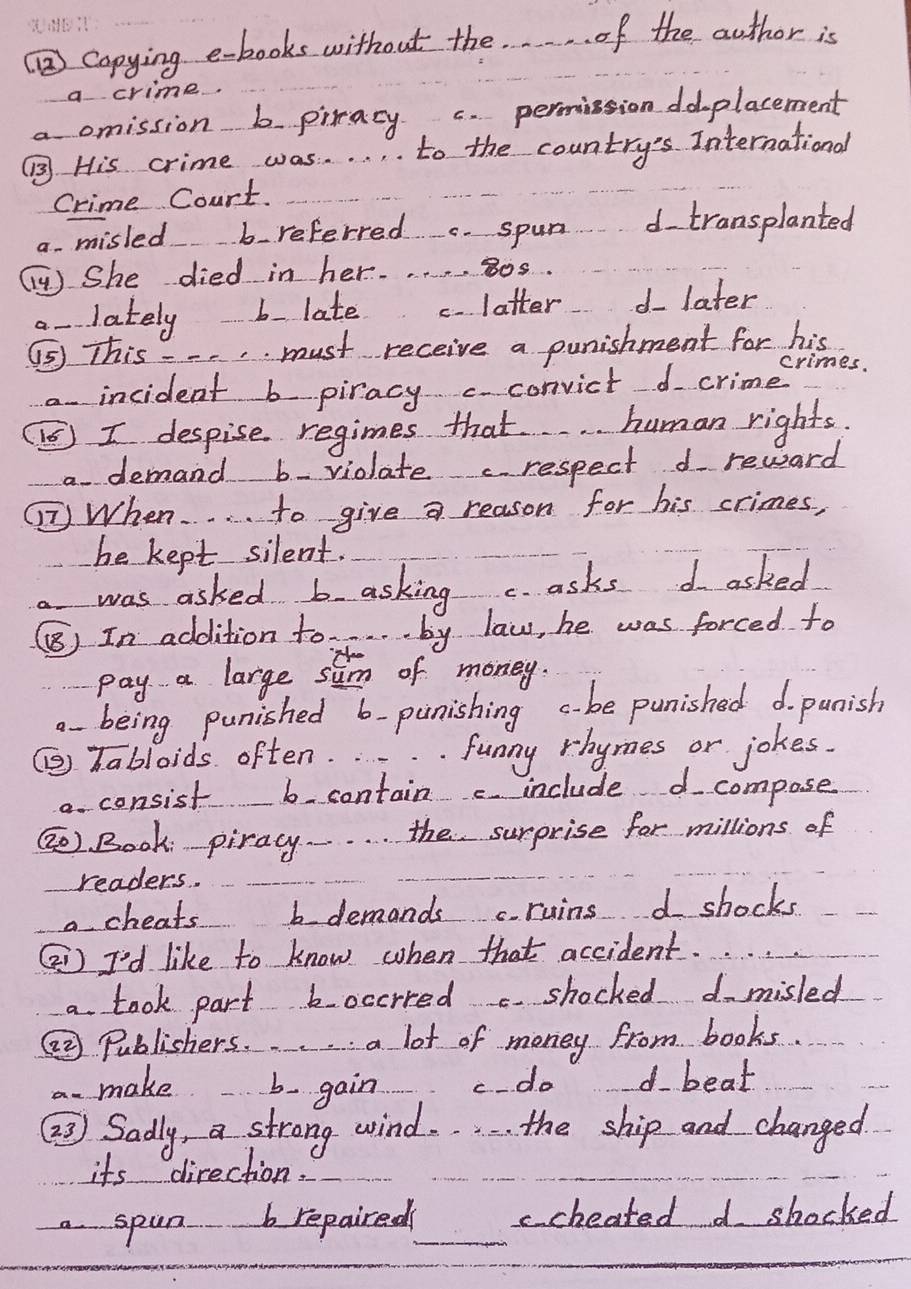 (12) Copying e-books without the ...... of the author is
a crime.
a- omission b- piracy c- permission d d-placement
(13) His crime was ...... to the country's International
Crime Court.
a- misled b- referred c- spun d- transplanted
(14) She died in her ...... 80s.
a- lately b- late c- latter d- later
(15) This ------ must receive a punishment for his
crimes.
a- incident b- piracy c- convict d- crime
(16) I despise regimes that ..... human rights.
a- demand b- violate c- respect d- reward
(17) When ..... to give a reason for his crimes,
he kept silent.
a- was asked b- asking c- asks d- asked
(18) In addition to ...... by law, he was forced to
pay a large sum of money.
a- being punished b- punishing c- be punished d. punish
(19) Tabloids often ...... funny rhymes or jokes.
a. consist b- contain c- include d- compose
(20) Book piracy ..... the surprise for millions of
readers.
a- cheats b- demands c- ruins d- shocks
(21) I'd like to know when that accident ......
a. took part b- occrred c- shocked d- misled
(22) Publishers ...... a lot of money from books.
a- make b- gain c- do d- beat
(23) Sadly, a strong wind ...... the ship and changed
its direction.
a- spun b- repaired c- cheated d- shocked